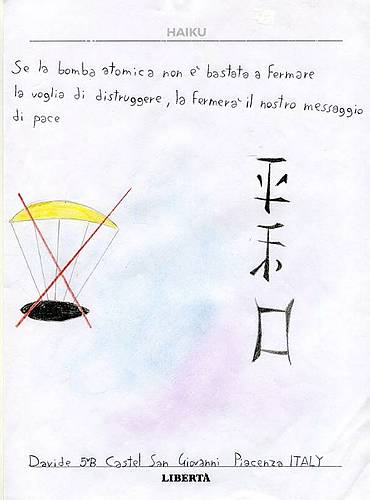 HAIKU
Se la bomba atomica non e' bastata a fermare
la voglia di distruggere, la fermera' il nostro messaggio
di pace
平
禾
口
Davide 5ªB Castel San Giovanni Piacenza ITALY
LIBERTÀ